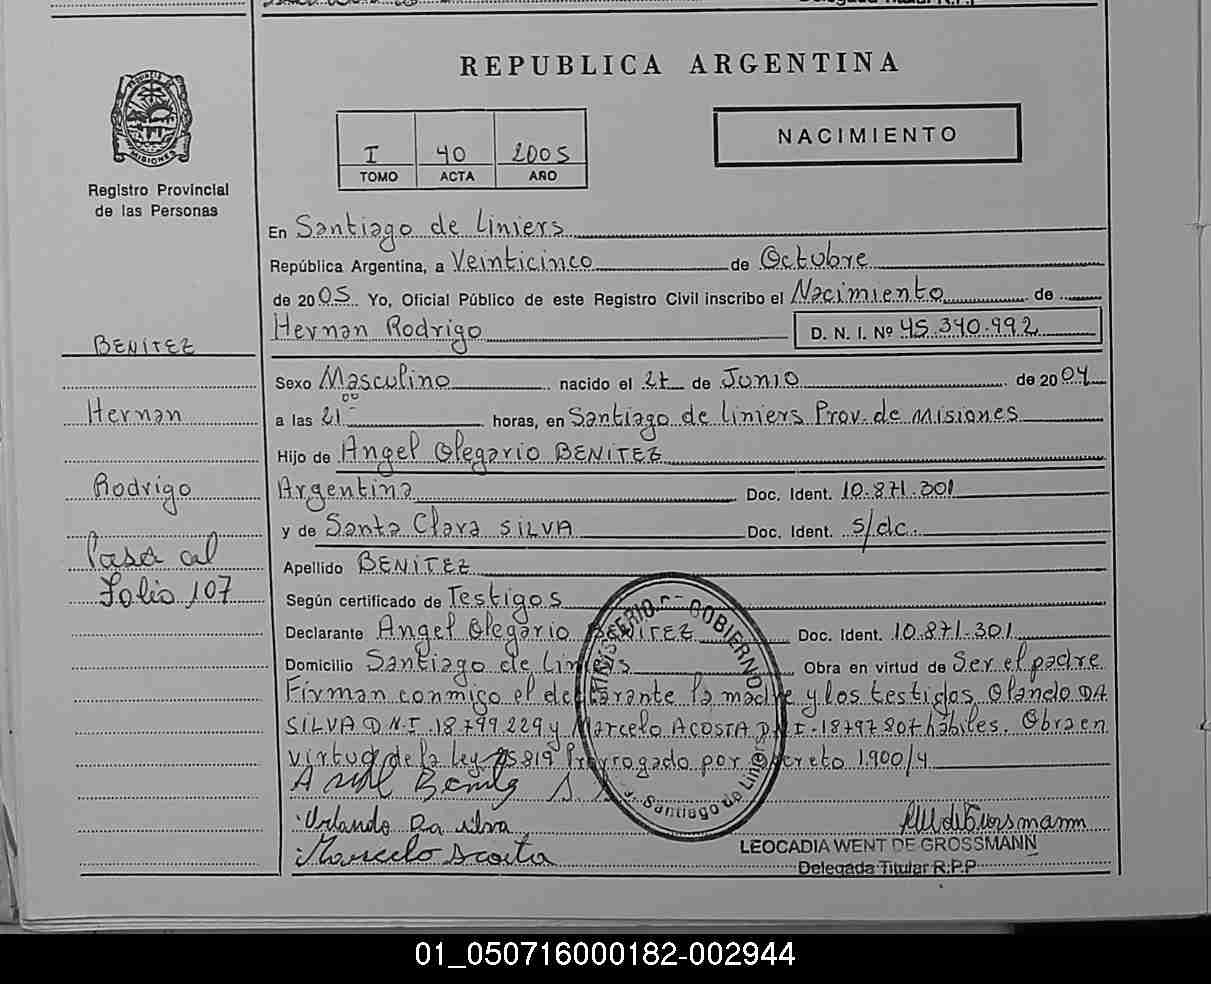 REPUBLICA ARGENTINA
PROVINCIA DE MISIONES
Registro Provincial
de las Personas
I 40 2005
TOMO ACTA AÑO
NACIMIENTO
En Santiago de Liniers
República Argentina, a Veinticinco de Octubre
de 2005 Yo, Oficial Público de este Registro Civil inscribo el Nacimiento de
Hernan Rodrigo D. N. I. Nº 45.340.992
BENITEZ
Sexo Masculino nacido el 27 de Junio de 2004
Hernan
a las 21 00 horas, en Santiago de Liniers Prov. de Misiones
Hijo de Angel Olegario BENITEZ
Rodrigo
Argentina Doc. Ident. 10.871.301
y de Santa Clara SILVA Doc. Ident. s/dc.
Pasa al
Folio 107
Apellido BENITEZ
Según certificado de Testigos
Declarante Angel Olegario BENITEZ Doc. Ident. 10.871.301
Domicilio Santiago de Liniers Obra en virtud de Ser el padre
Firman conmigo el declarante la madre y los testigos Olando DA
SILVA D.N.I. 18.799.229 y Marcelo ACOSTA D.N.I. 18797807 hábiles. Obra en
virtud de la Ley 25819 Prorrogado por Decreto 1900/4
MINISTERIO DE GOBIERNO
Santiago de Liniers
Benitez
Orlando Da silva
Marcelo Acosta
LEOCADIA WENT DE GROSSMANN
Delegada Titular R.P.P
01_050716000182-002944